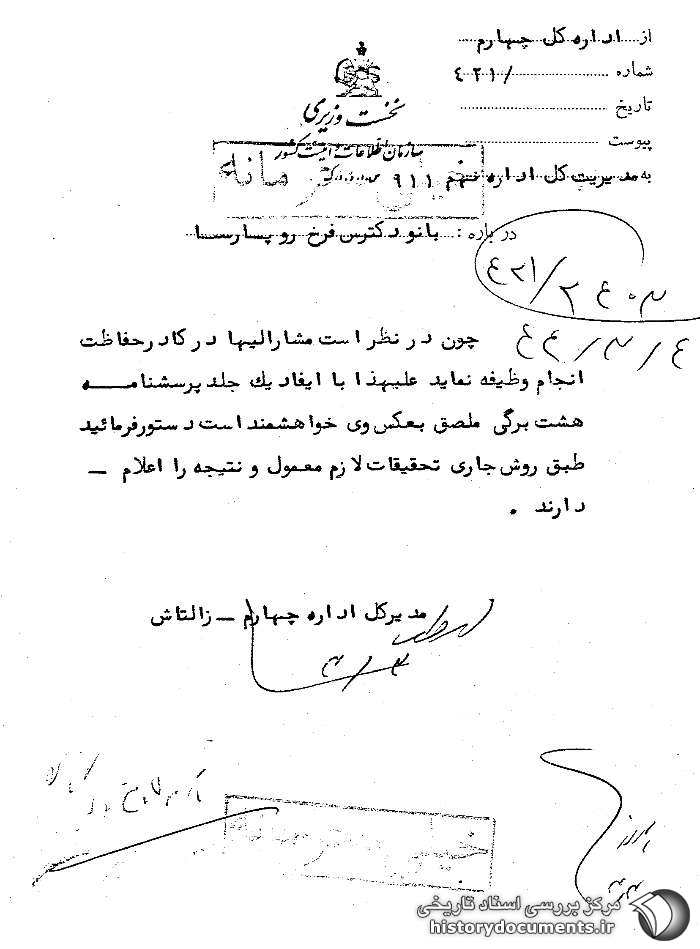 از اداره کل چهارم
شماره /٤٢١
تاریخ
پیوست
نخست وزیری
سازمان اطلاعات و امنیت کشور
به مدیریت کل اداره نهم ٩١١
خیلی محرمانه
درباره: بانو دکتر فرخ رو پارسا
٤٢١/٢٤٠٣
٤٤/٣/٤
چون در نظر است مشارالیها در کادر حفاظت
انجام وظیفه نماید علیهذا با ایفاد یك جلد پرسشنامه
هشت برگی ملصق بعکس وی خواهشمند است دستور فرمائید
طبق روش جاری تحقیقات لازم معمول و نتیجه را اعلام –
دارند .
مدیر کل اداره چهارم – زالتاش
٣/٣
خیلی محرمانه
مرکز بررسی اسناد تاریخی
historydocuments.ir